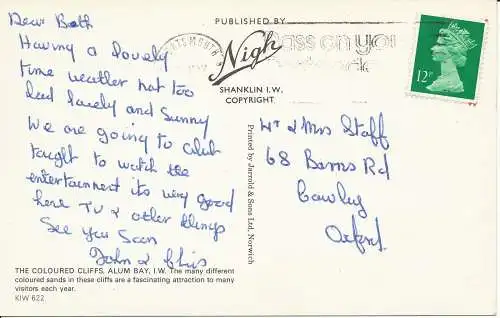 Dear Both
Having a lovely
time weather not too
bad lovely and Sunny
We are going to club
taught to watch the
entertainment its very good
here TV & other things
See you Soon
John & Chris
THE COLOURED CLIFFS, ALUM BAY, I.W. The many different
coloured sands in these cliffs are a fascinating attraction to many
visitors each year.
KIW 622
PUBLISHED BY
Nigh
SHANKLIN I.W.
COPYRIGHT
Printed by Jarrold & Sons Ltd, Norwich
PORTSMOUTH
pass on you
12P
Mr & Mrs Staff
68 Barns Rd
Cowley
Oxford